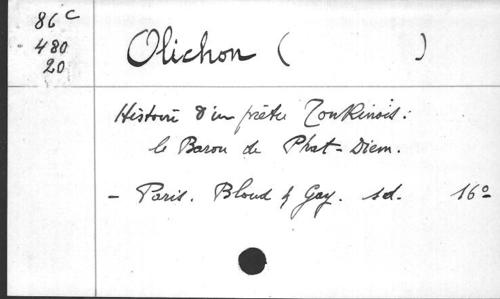 86 C
480
20
Olichon ( )
Histoire d'un prêtre Tonkinois :
le Baron de Phat-Diem.
- Paris. Bloud & Gay. sd. 16°